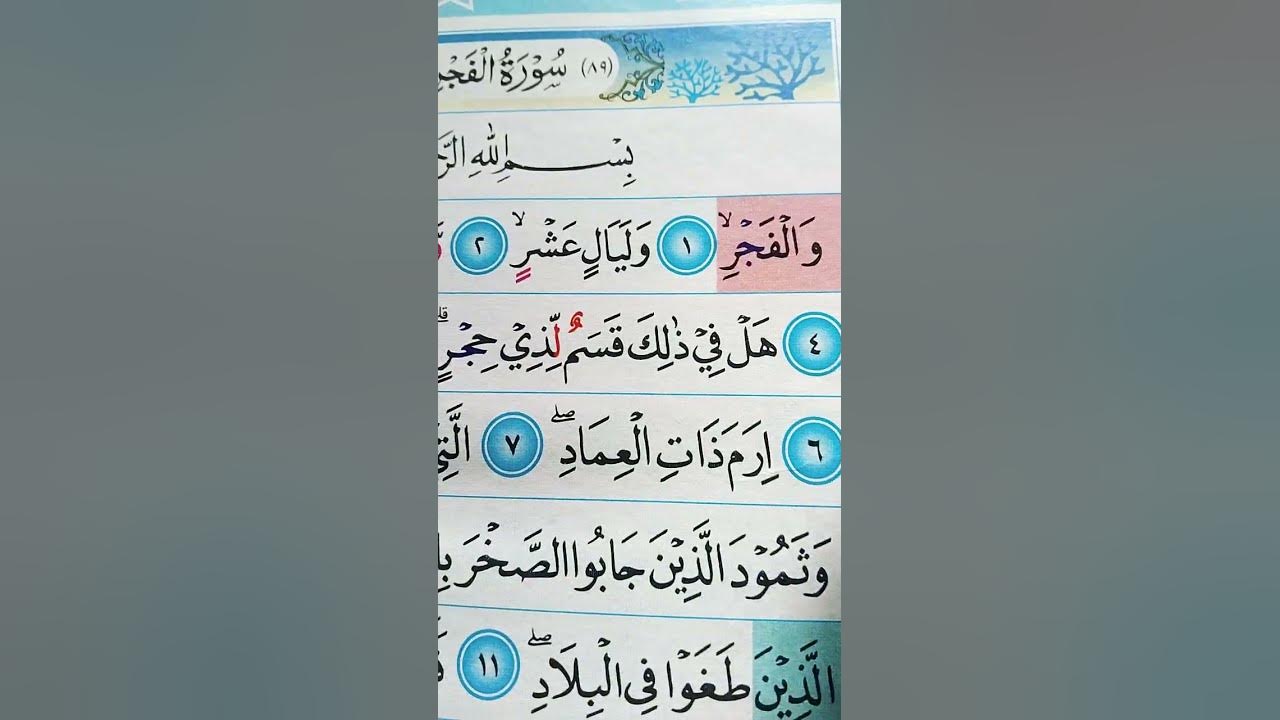 (٨٩) سُوْرَةُ الْفَجْرِ
بِسْمِ اللّٰهِ
وَالْفَجْرِۙ ١ وَلَيَالٍ عَشْرٍۙ ٢
٤ هَلْ فِيْ ذٰلِكَ قَسَمٌ لِّذِيْ حِجْرٍۗ
٦ اِرَمَ ذَاتِ الْعِمَادِۖ ٧
وَثَمُوْدَ الَّذِيْنَ جَابُوا الصَّخْرَ
الَّذِيْنَ طَغَوْا فِى الْبِلَادِۖ ١١